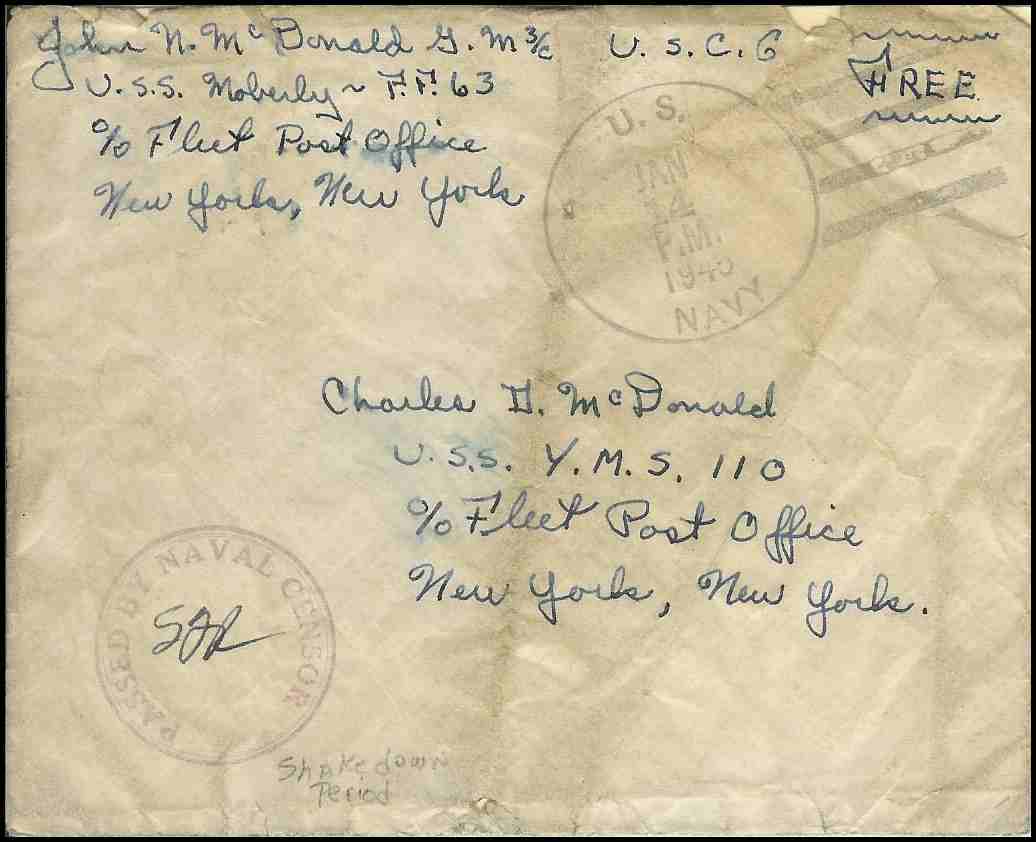 John N. McDonald G. M 3/c U. S. C. G
U. S. S. Moberly ~ P. F. 63
c/o Fleet Post Office
New York, New York
FREE
U. S.
JAN
14
P.M.
NAVY
Charles D. McDonald
U. S. S. Y. M. S. 110
c/o Fleet Post Office
New York, New York.
PASSED BY NAVAL CENSOR
Shakedown
Period